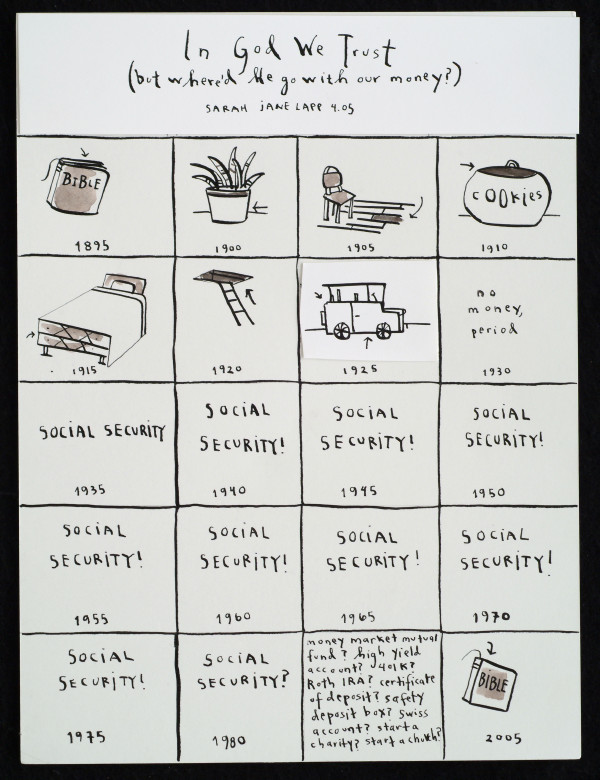 In God We Trust
(but where'd He go with our money?)
SARAH JANE LAPP 4.05
BIBLE
1895
1900
1905
COOKies
1910
1915
1920
1925
no
money,
period
1930
SOCIAL SECURITY
1935
SOCIAL
SECURITY!
1940
SOCIAL
SECURITY!
1945
SOCIAL
SECURITY!
1950
SOCIAL
SECURITY!
1955
SOCIAL
SECURITY!
1960
SOCIAL
SECURITY!
1965
SOCIAL
SECURITY!
1970
SOCIAL
SECURITY!
1975
SOCIAL
SECURITY?
1980
money market mutual
fund? high yield
account? 401K?
Roth IRA? certificate
of deposit? safety
deposit box? Swiss
account? start a
charity? start a church?
BIBLE
2005